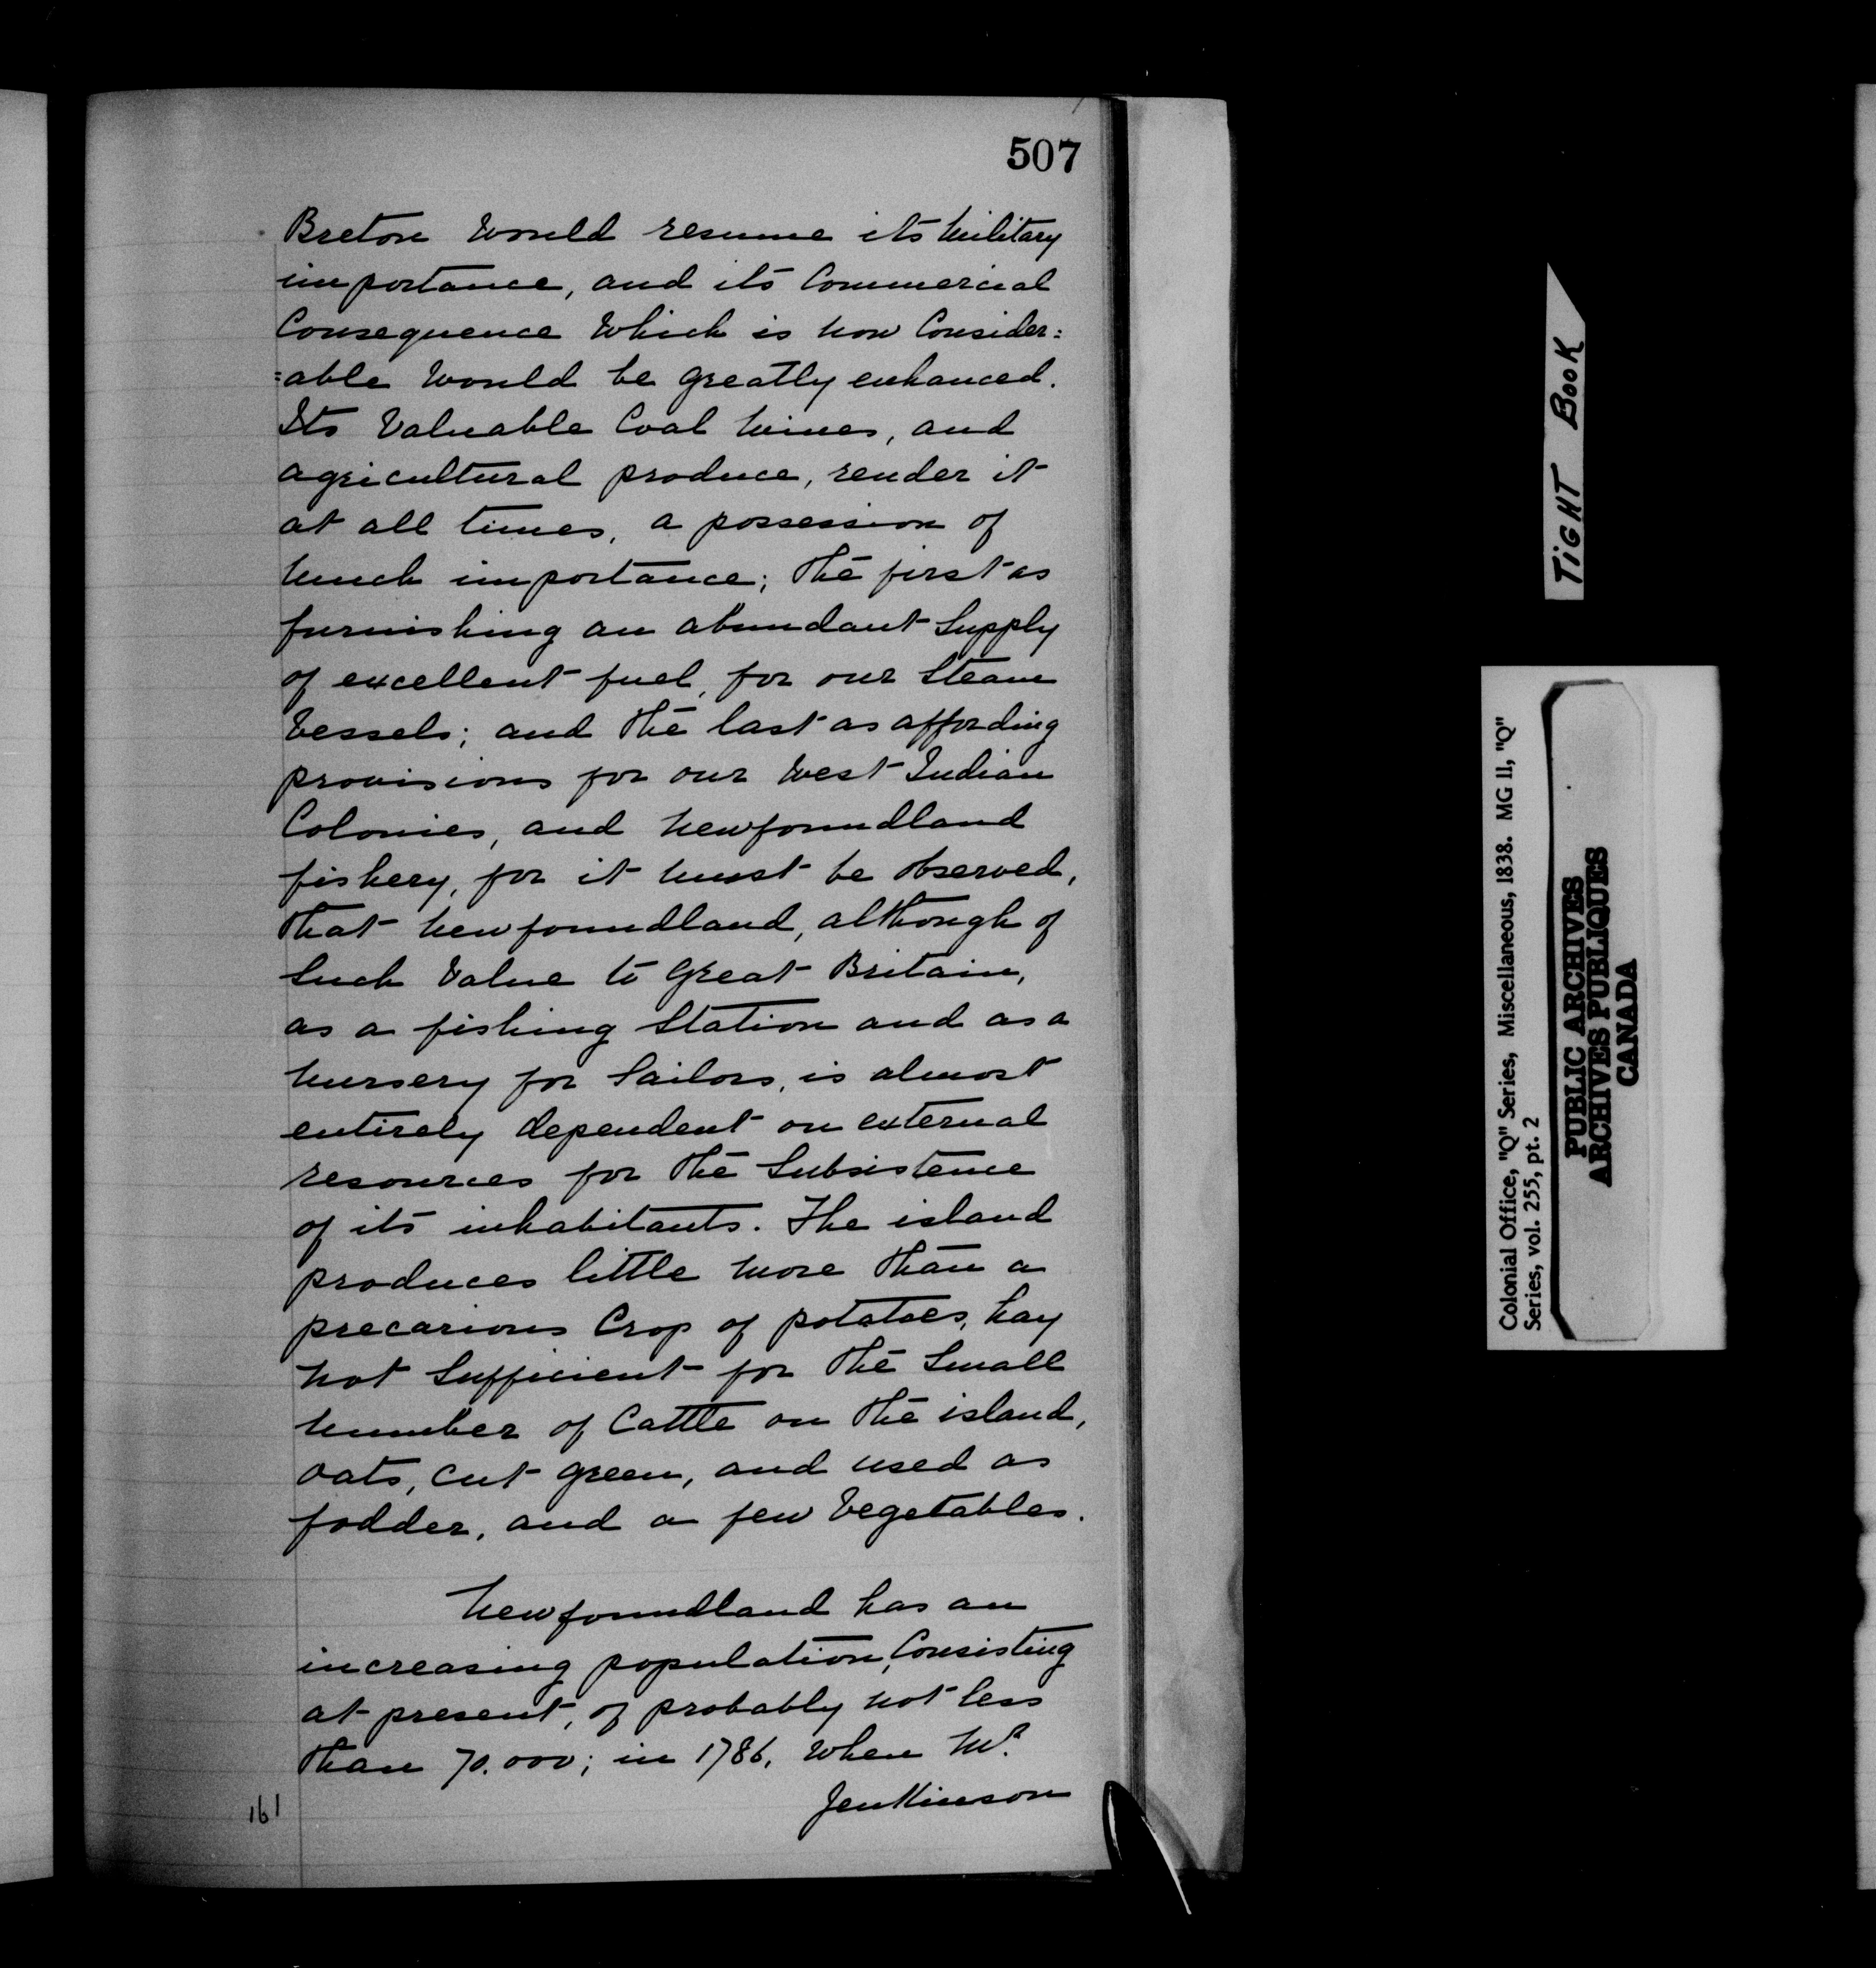 507
Breton would resume its military
importance, and its Commercial
Consequence which is now Consider=
=able would be greatly enhanced.
Its Valuable Coal mines, and
agricultural produce, render it
at all times, a possession of
much importance; the first as
furnishing an abundant Supply
of excellent fuel, for our Steam
Vessels; and the last as affording
provisions for our West Indian
Colonies, and Newfoundland
fishery, for it must be observed,
that Newfoundland, although of
Such Value to Great Britain,
as a fishing Station and as a
nursery for Sailors, is almost
entirely dependent on external
resources for the Subsistence
of its inhabitants. The island
produces little more than a
precarious Crop of potatoes, hay
not Sufficient for the Small
number of Cattle on the island,
oats, cut green, and used as
fodder, and a few Vegetables.
Newfoundland has an
increasing population, Consisting
at present, of probably not less
than 70.000; in 1786, when Mr.
Jenkinson
161
TIGHT BOOK
Colonial Office, "Q" Series, Miscellaneous, 1838. MG 11, "Q"
Series, vol. 255, pt. 2
PUBLIC ARCHIVES
ARCHIVES PUBLIQUES
CANADA